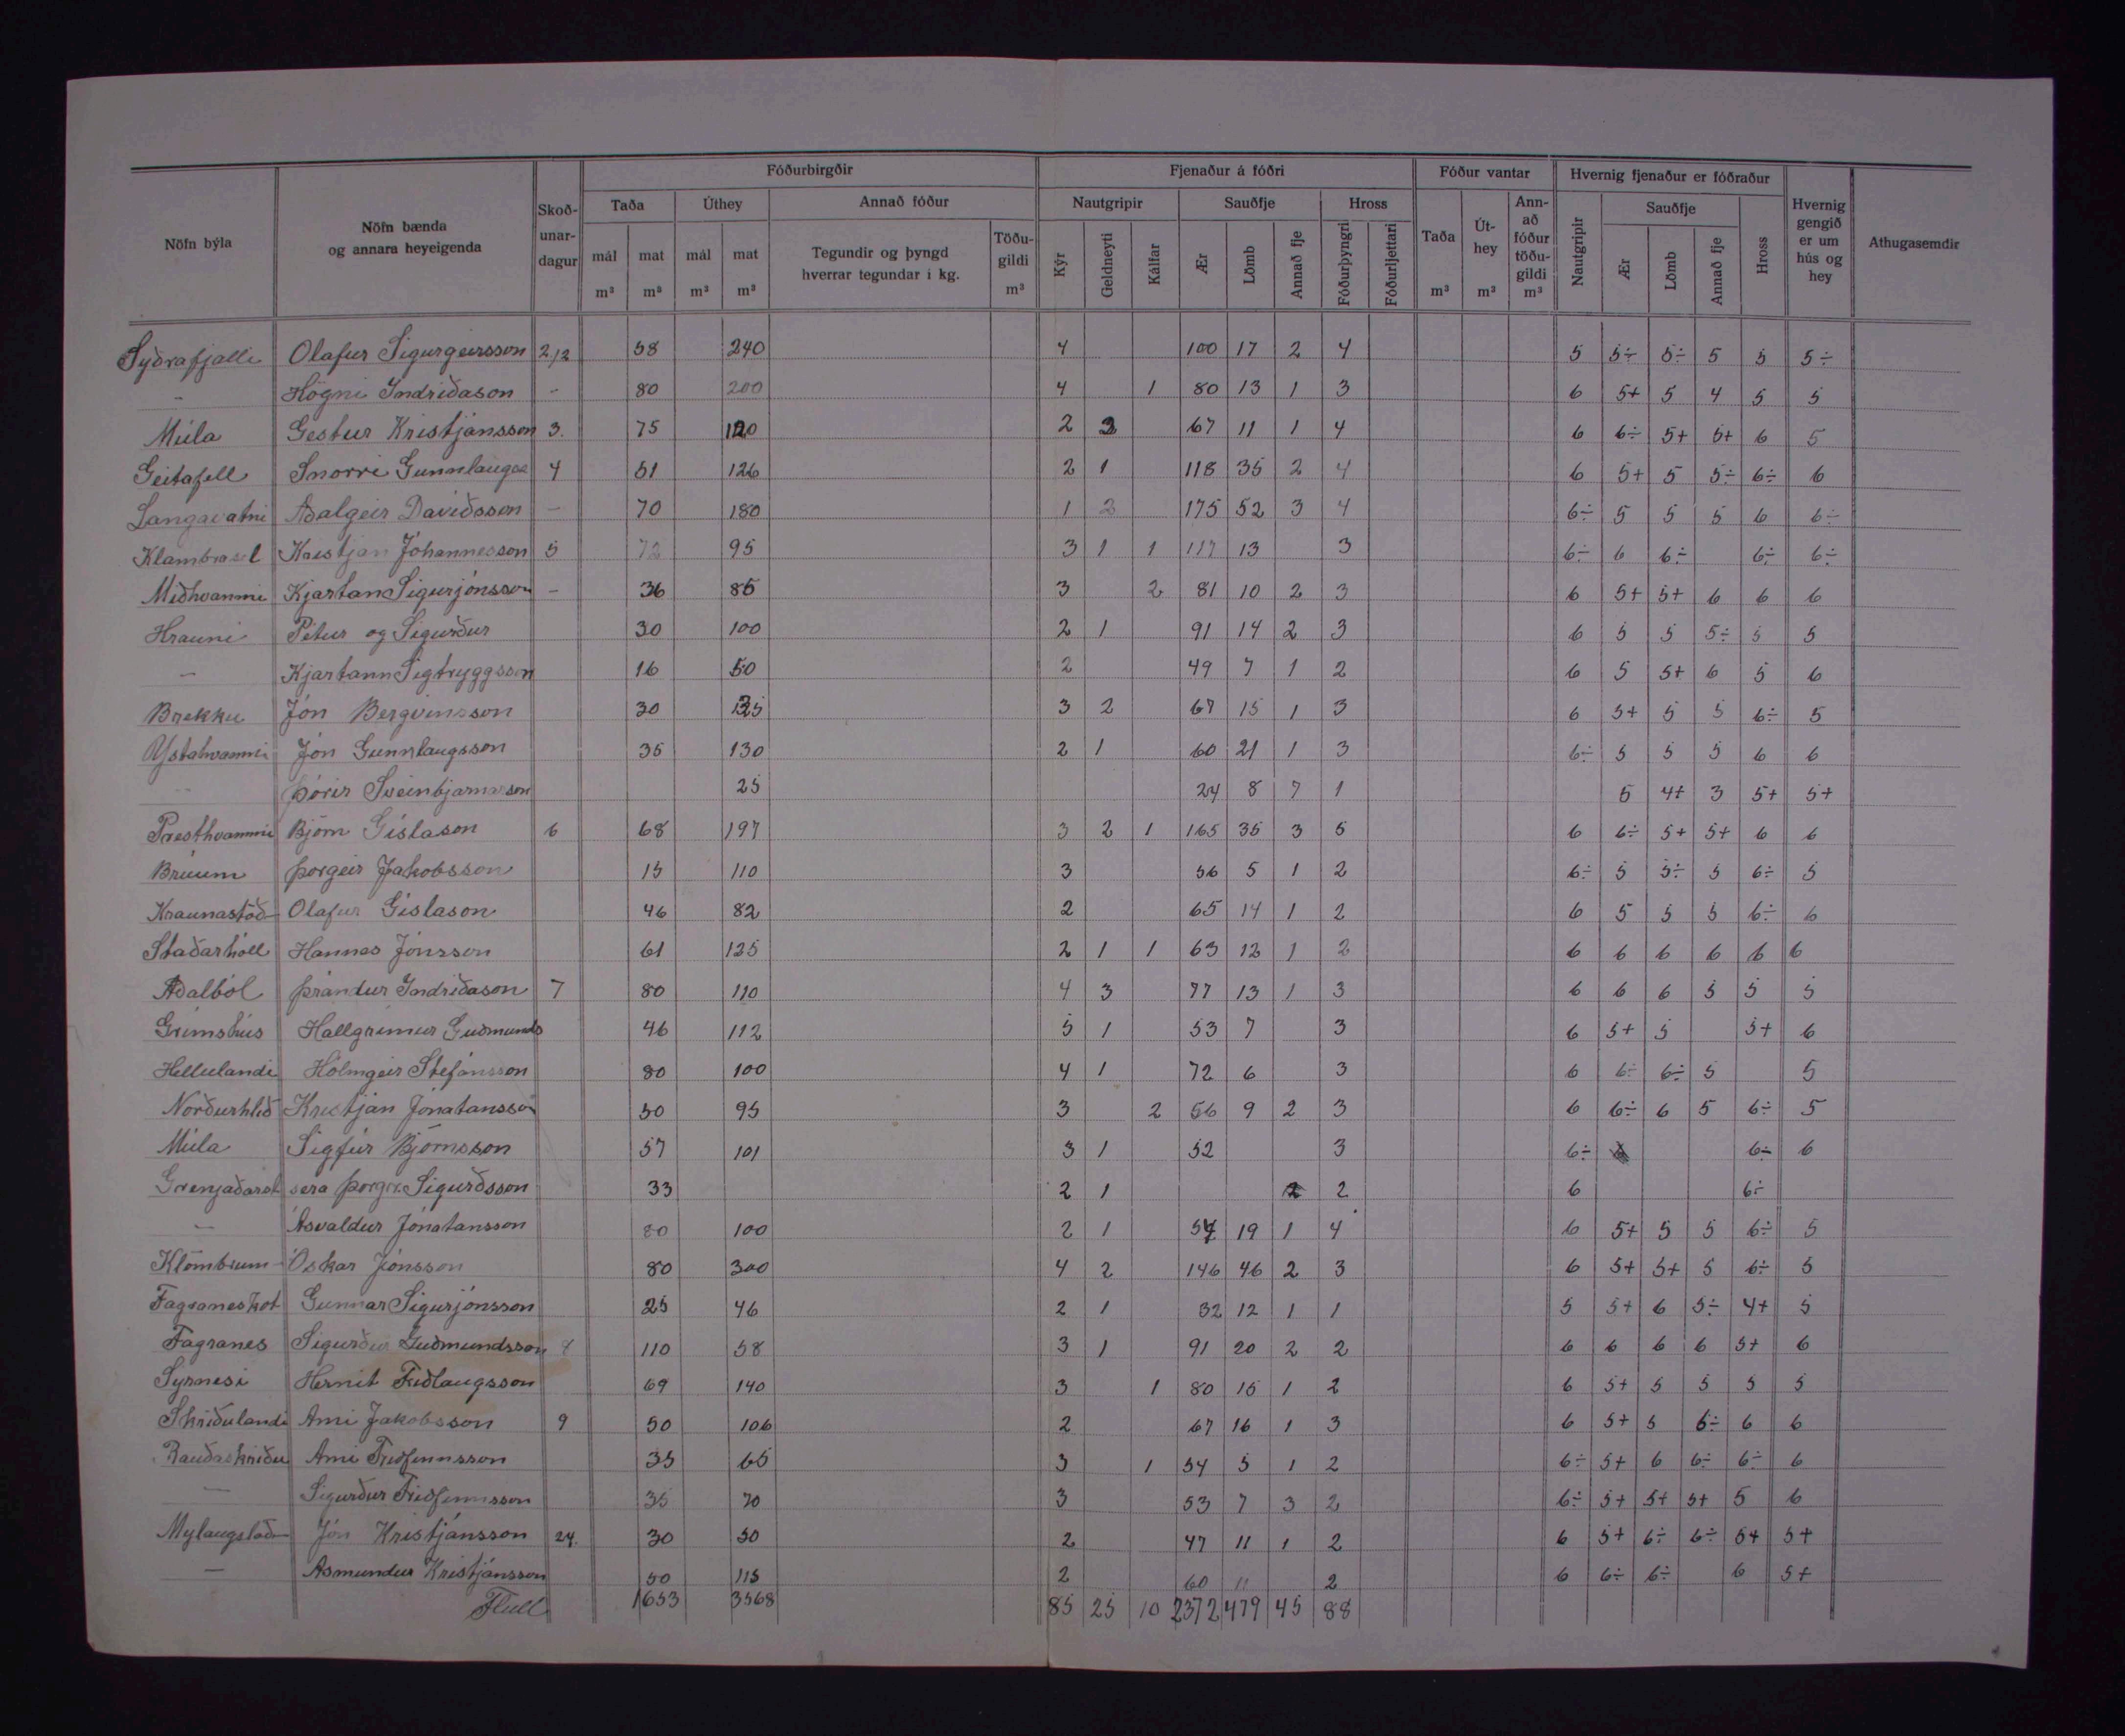 Fóðurbirgðir Fjenaður á fóðri Fóður vantar Hvernig fjenaður er fóðraður
Nöfn býla Nöfn bænda og annara heyeigenda Skoð-unar-dagur Taða Úthey Annað fóður Nautgripir Sauðfje Hross Taða Út-hey Ann-að fóður töðu-gildi Nautgripir Sauðfje Hross Hvernig gengið er um hús og hey Athugasemdir
mál mat mál mat Tegundir og þyngd hverrar tegundar í kg. Töðu-gildi Kýr Geldneyti Kálfar Ær Lömb Annað fje Fóðurþyngri Fóðurljettari Ær Lömb Annað fje
m³ m³ m³ m³ m³ m³ m³ m³
Syðrafjalli Olafur Sigurgeirsson 2/2 58 240 4 100 17 2 4 5 5÷ 5÷ 5 5 5÷
- Högni Indriðason - 80 200 4 1 80 13 1 3 6 5+ 5 4 5 5
Múla Gestur Kristjánsson 3. 75 120 2 67 11 1 4 6 6÷ 5+ 5+ 6 5
Geitafell Snorri Gunnlaugss 4 51 126 2 1 118 35 2 4 6 5+ 5 5÷ 6÷ 6
Langavatni Aðalgeir Davíðsson - 70 180 1 2 175 52 3 4 6÷ 5 5 5 6 6÷
Klambrasel Kristján Jóhannesson 5 72 95 3 1 1 117 13 3 6÷ 6 6÷ 6÷ 6÷
Miðhvammi Kjartan Sigurjónsson - 36 85 3 2 81 10 2 3 6 5+ 5+ 6 6 6
Hrauni Pétur og Sigurður 30 100 2 1 91 14 2 3 6 5 5 5÷ 5 5
- Kjartann Sigtryggsson 16 50 2 49 7 1 2 6 5 5+ 6 5 6
Brekku Jón Bergvinsson 30 135 3 2 67 15 1 3 6 5+ 5 5 6÷ 5
Ystahvammi Jón Gunnlaugsson 35 130 2 1 60 21 1 3 6÷ 5 5 5 6 6
- Þórir Sveinbjarnarson 25 24 8 7 1 5 4+ 3 5+ 5+
Presthvammi Björn Gíslason 6 68 197 3 2 1 165 35 3 5 6 6÷ 5+ 5+ 6 6
Brúum Þorgeir Jakobsson 15 110 3 56 5 1 2 6÷ 5 5÷ 5 6÷ 5
Kraunastöð Olafur Gíslason 46 82 2 65 14 1 2 6 5 5 5 6÷ 6
Staðarhóll Hannes Jónsson 61 125 2 1 1 63 12 1 2 6 6 6 6 6 6
Aðalból Þrándur Indriðason 7 80 110 4 3 77 13 1 3 6 6 6 5 5 5
Grímshús Hallgrímur Guðmunds 46 112 5 1 53 7 3 6 5+ 5 5+ 6
Hellulandi Hólmgeir Stefánsson 80 100 4 1 72 6 3 6 6÷ 6÷ 5 5
Norðurhlíð Kristján Jónatansson 50 95 3 2 56 9 2 3 6 6÷ 6 5 6÷ 5
Múla Sigfús Björnsson 57 101 3 1 52 3 6÷ 6÷ 6
Grenjaðarst séra Þorgr. Sigurðsson 33 2 1 2 6 6÷
- Ásvaldur Jónatansson 80 100 2 1 57 19 1 4 6 5+ 5 5 6÷ 5
Klömbrum Óskar Jónsson 80 300 4 2 146 46 2 3 6 5+ 5+ 5 6÷ 5
Fagraneskot Gunnar Sigurjónsson 25 46 2 1 32 12 1 1 5 5+ 6 5÷ 4+ 5
Fagranes Sigurður Guðmundsson 8 110 58 3 1 91 20 2 2 6 6 6 6 5+ 6
Syrnesi Hernit Friðlaugsson 69 140 3 1 80 15 1 2 6 5+ 5 5 5 5
Skriðulandi Arni Jakobsson 9 50 106 2 67 16 1 3 6 5+ 5 6÷ 6 6
Rauðaskriðu Arni Friðfinnsson 35 65 3 1 54 5 1 2 6÷ 5+ 6 6÷ 6÷ 6
- Sigurður Friðfinnsson 35 70 3 53 7 3 2 6÷ 5+ 5+ 5+ 5 6
Mylaugstöð Jón Kristjánsson 24. 30 50 2 47 11 1 2 6 5+ 6÷ 6÷ 5+ 5+
- Asmundur Kristjánsson 50 115 2 60 11 2 6 6÷ 6÷ 6 5+
Flutt 1653 3568 85 25 10 2372 479 45 88